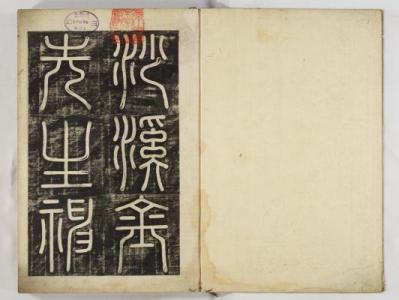 沙溪金
先生神